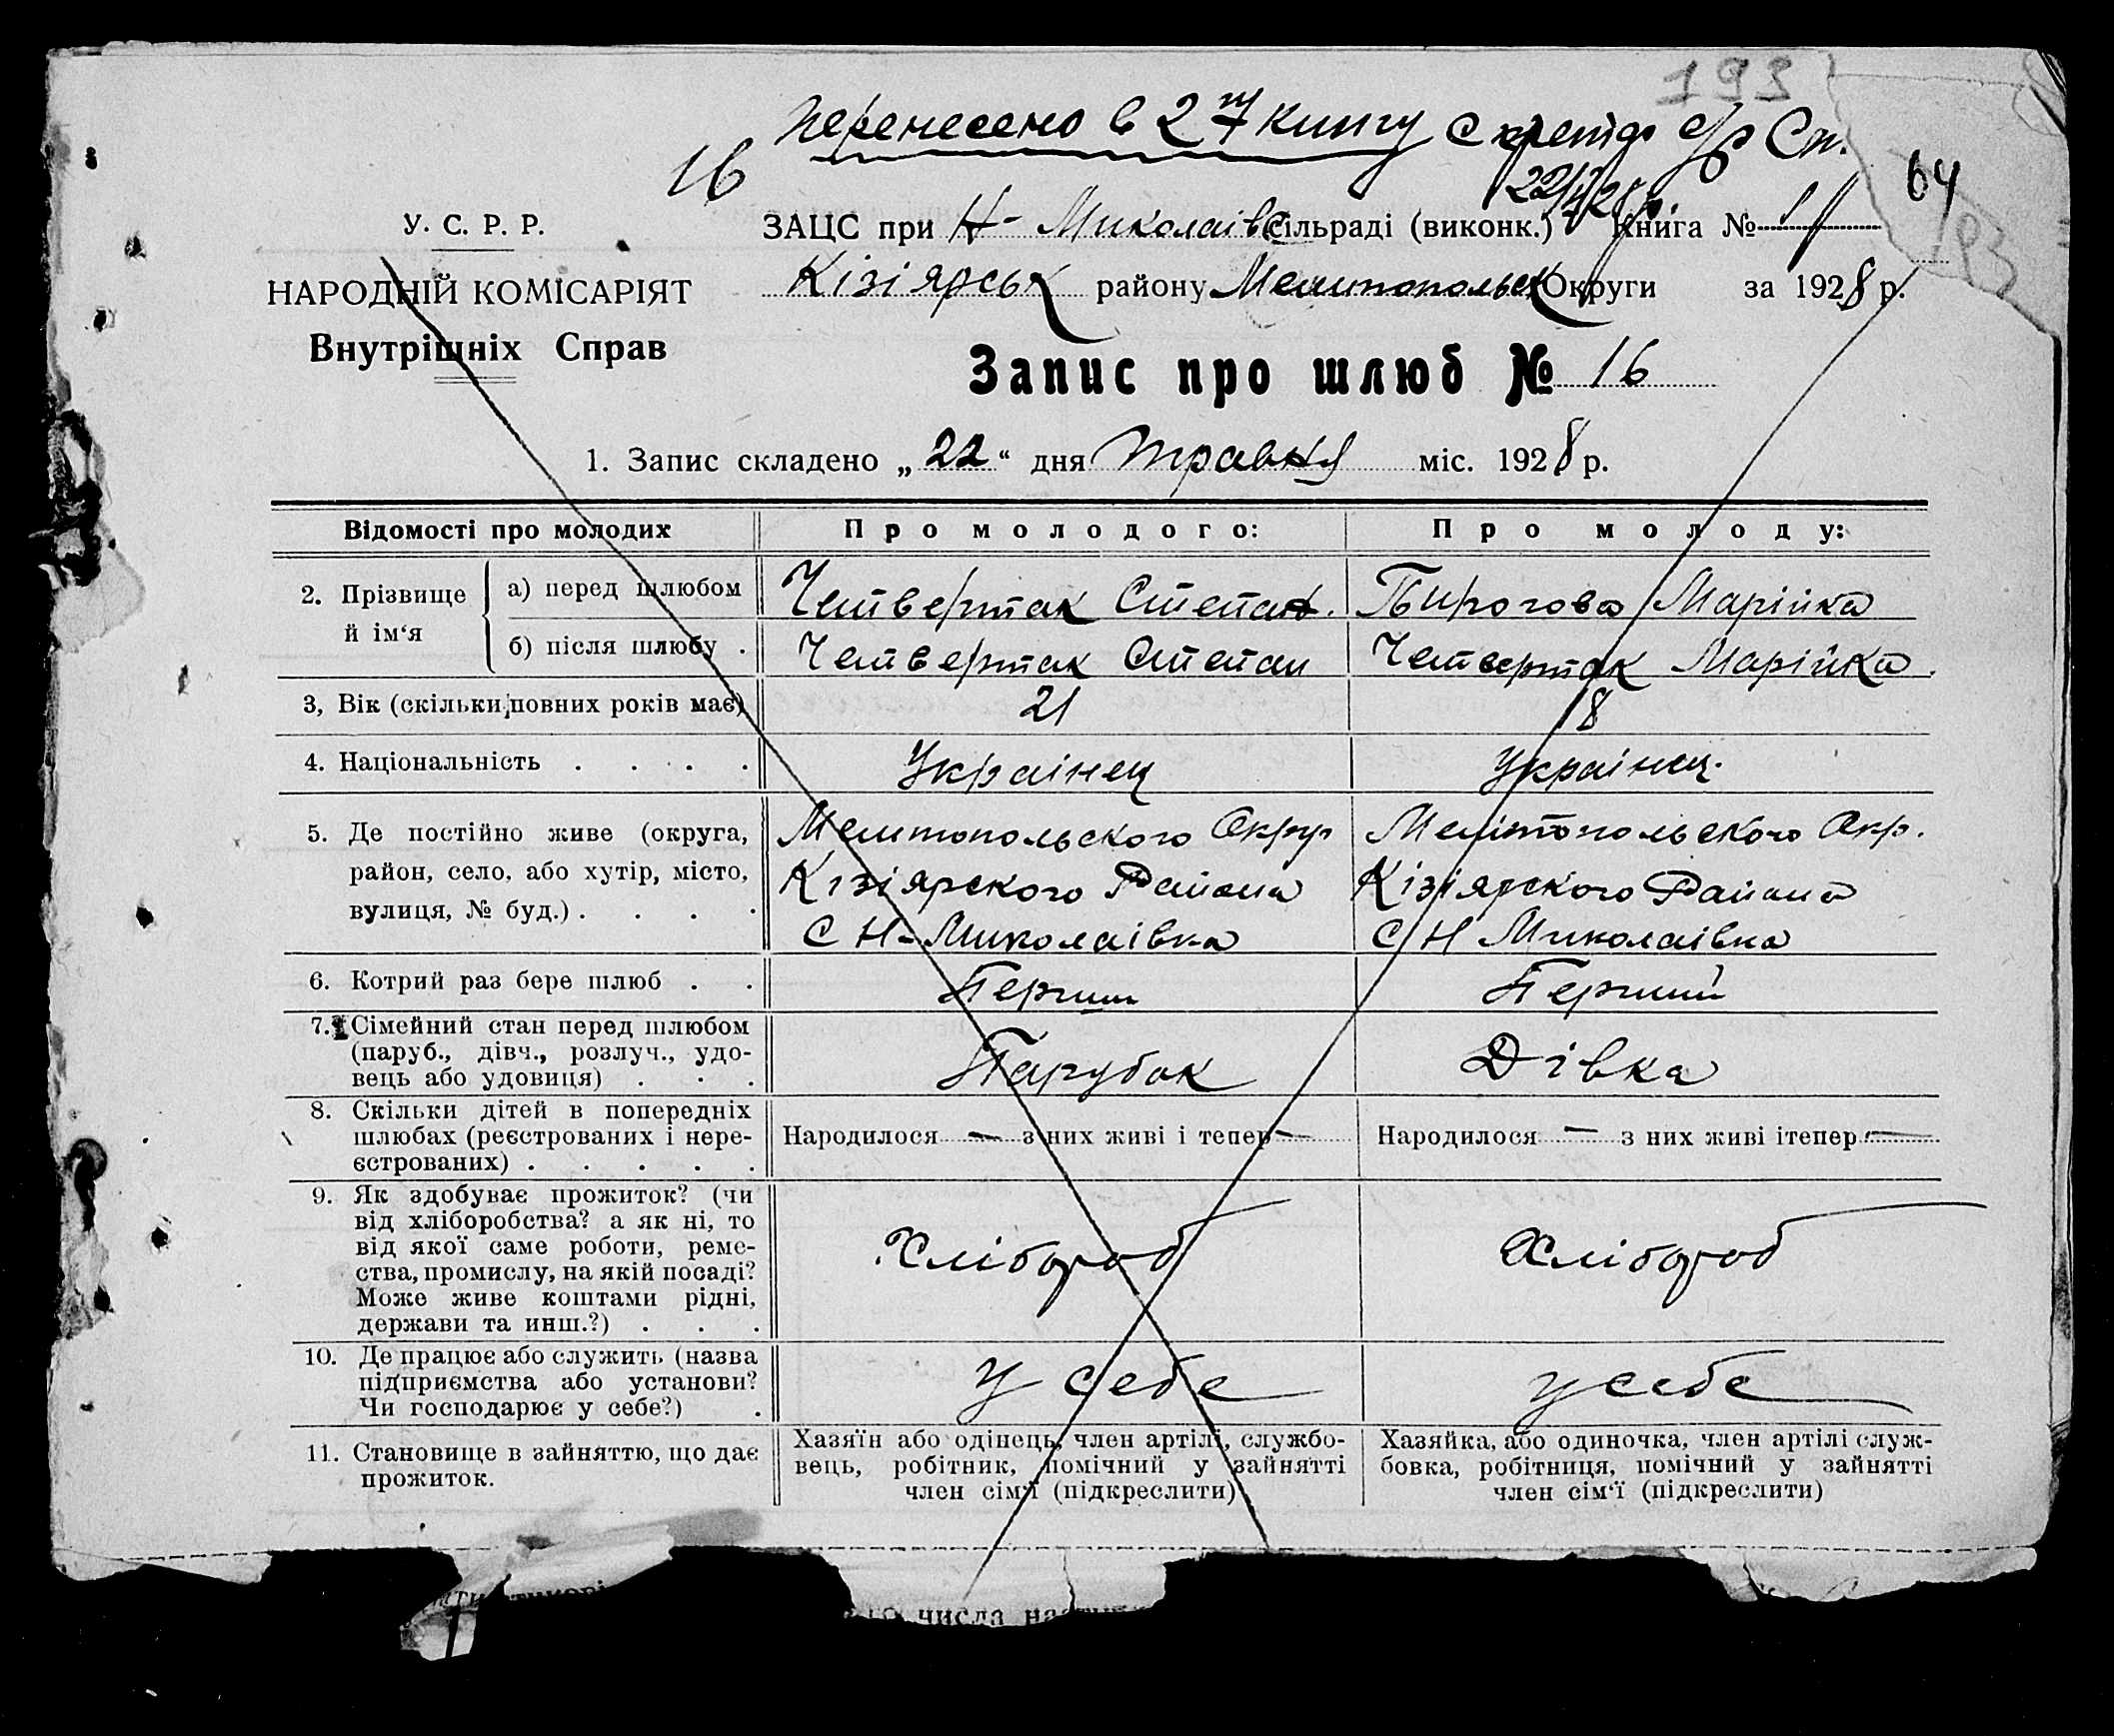 193
Перенесено в 2 ту книгу Секретар с/р
16
64
У. С. Р. Р.
ЗАЦС при Н- Миколаівс сільраді (виконк.) Книга №
193
НАРОДНІЙ КОМІСАРІЯТ
Кізіярськ району Мелитопольськ Округи за 1928 р.
Внутрішніх Справ
Запис про шлюб № 16
1. Запис складено „ 22 “ дня травня міс. 1928 р.
Відомості про молодих
Про молодого:
Про молоду:
2. Прізвище й ім‘я
а) перед шлюбом
Четвертак Степан.
Пирогова Марійка
б) після шлюбу .
Четвертак Степан
Четвертак Марійка.
3, Вік (скільки повних років має)
21
18
4. Національність . . . .
Украінец
Украінец.
5. Де постійно живе (округа,
район, село, або хутір, місто,
вулиця, № буд.) . . . .
Мелитопольского Округ
Кізіярского Района
С Н-Миколаівка
Мелітопольского Окр.
Кізіярского Района
С/Н Миколаівка
6. Котрий раз бере шлюб . .
Перший
Перший
7. Сімейний стан перед шлюбом
(паруб., дівч., розлуч., удо-
вець або удовиця) . . .
Парубок
Дівка
8. Скільки дітей в попередніх
шлюбах (реєстрованих і нере-
єстрованих) . . . . .
Народилося — з них живі і тепер —
Народилося — з них живі ітепер —
9. Як здобуває прожиток? (чи
від хліборобства? а як ні, то
від якої саме роботи, реме-
ства, промислу, на якій посаді?
Може живе коштами рідні,
держави та инш.?) . . .
Хлібороб
Хлібороб
10. Де працює або служить (назва
підприємства або установи?
Чи господарює у себе?) .
У себе
у себе
11. Становище в зайняттю, що дає
прожиток.
Хазяїн або одінець, член артілі, службо-
вець, робітник, помічний у зайнятті
член сім‘ї (підкреслити)
Хазяйка, або одиночка, член артілі служ-
бовка, робітниця, помічний у зайнятті
член сім‘ї (підкреслити)
числа